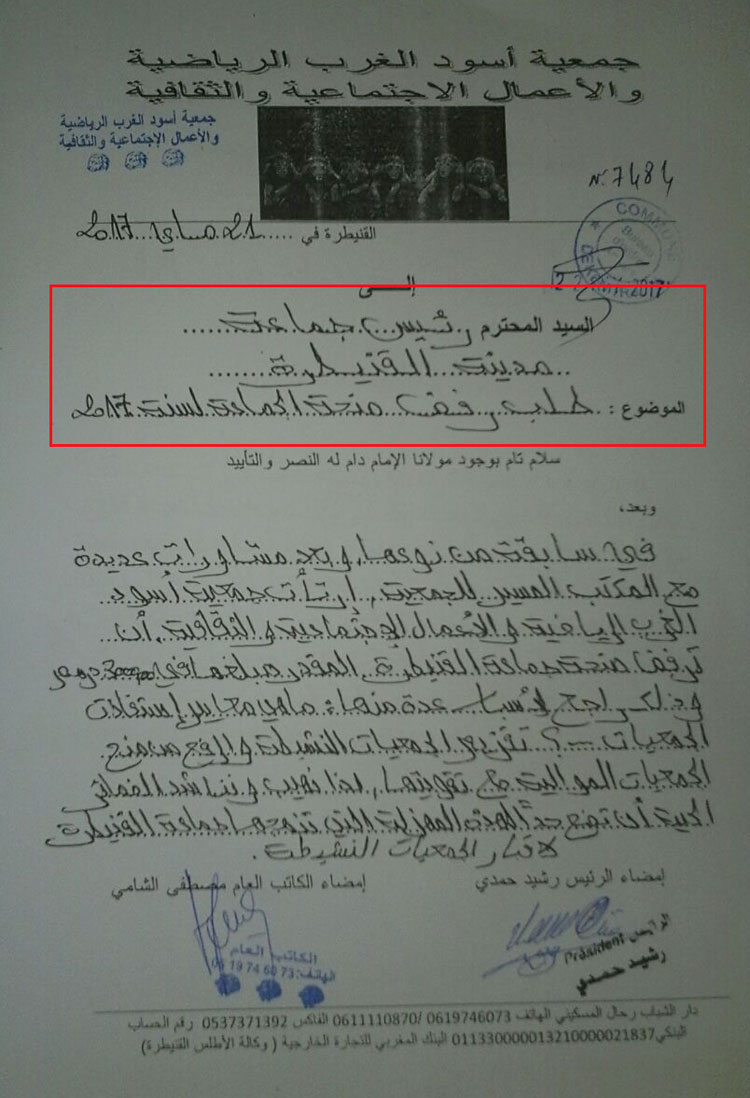 جمعية أسود الغرب الرياضية
والأعمال الاجتماعية والثقافية
جمعية أسود الغرب الرياضية
والأعمال الإجتماعية والثقافية
N° 7484
COMMUNE
القنيطرة في ..... 21 ماي 2017
إلـــى
السيد المحترم رئيس جماعة ......
.. مدينة القنيطرة ........
الموضوع : . طلب رفض منحة الجماعة لسنة 2017
سلام تام بوجود مولانا الإمام دام له النصر والتأييد
وبعد،
في سابقة من نوعها, وبعد مشاورات عديدة
مع المكتب المسير للجمعية, ارتأت جمعية أسود
الغرب الرياضية والأعمال الإجتماعية والثقافية, أن
ترفض منحة جماعة القنيطرة المقدر مبلغها في 3000 درهم
وذلك راجع لأسباب عدة منها: ماهي معايير إستفادات
الجمعيات ..؟ تقزيم الجمعيات النشيطة والرفع من منح
الجمعيات الموالية مع تقويتها, لذا نهيب ونناشد الضمائر
الحية أن توضع حدا لهذه المهزلة التي تنهجها جماعة القنيطرة
لإقبار الجمعيات النشيطة.
إمضاء الرئيس رشيد حمدي
إمضاء الكاتب العام مصطفى الشامي
الرئيس Président
رشيد حمدي
الكاتب العام
الهاتف: 06 19 74 60 73
دار الشباب رحال المسكيني الهاتف 0619746073 /0611110870 الفاكس 0537371392 رقم الحساب
البنكي 011330000013210000021837 البنك المغربي للتجارة الخارجية ( وكالة الأطلس القنيطرة)